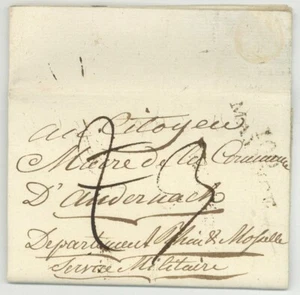 au Citoyen
Maire de la Commune
D'Andernach
Departement Rhin & Moselle
Service Militaire